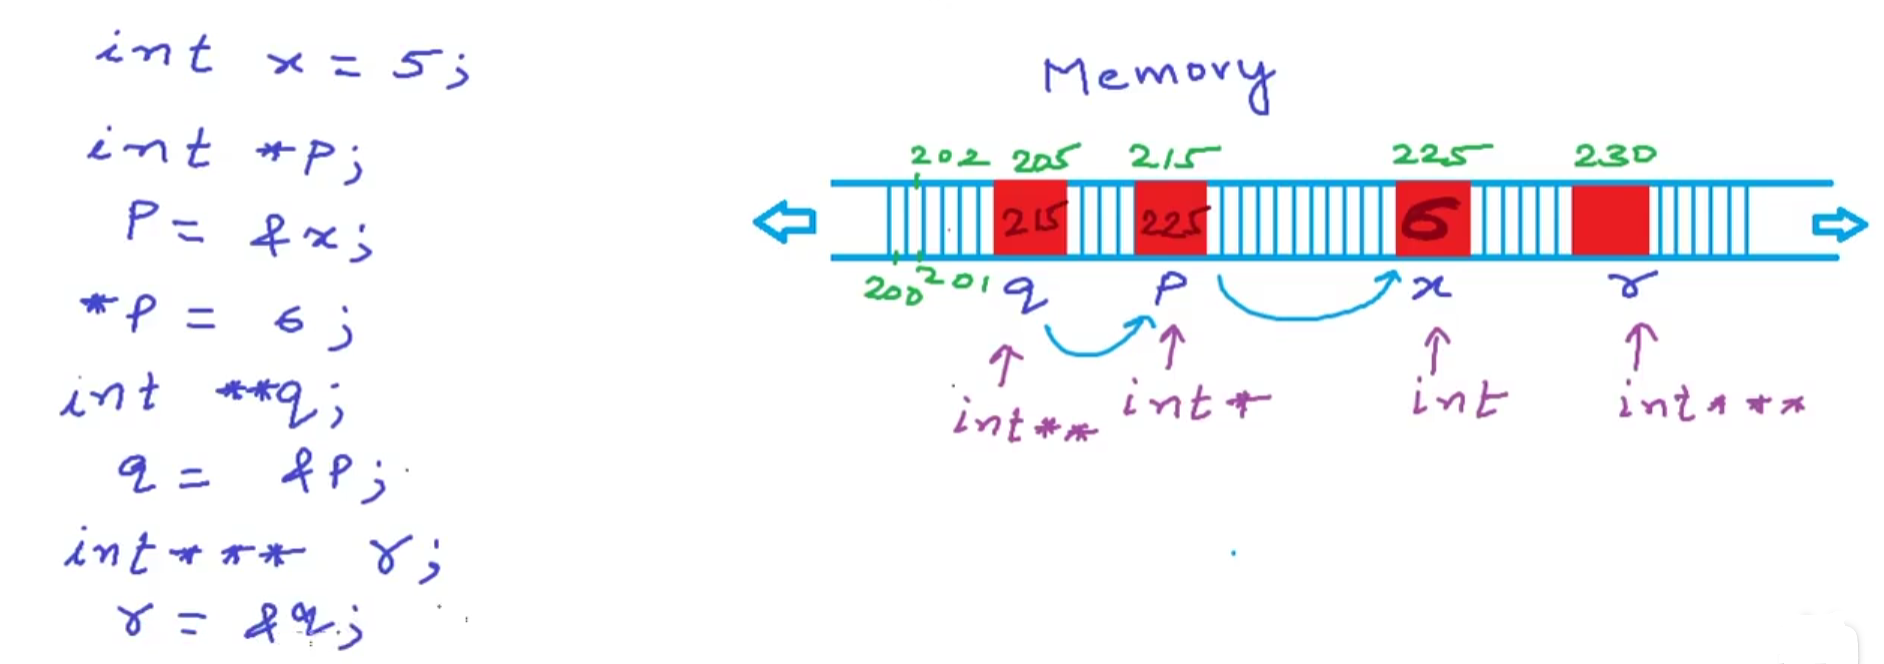 int x = 5;
int *p;
P = &x;
*P = 6;
int **q;
q = &P;
int*** r;
r = &q;
Memory
202 205 215 225 230
215 225 6
200 201 q P x r
int** int* int int***